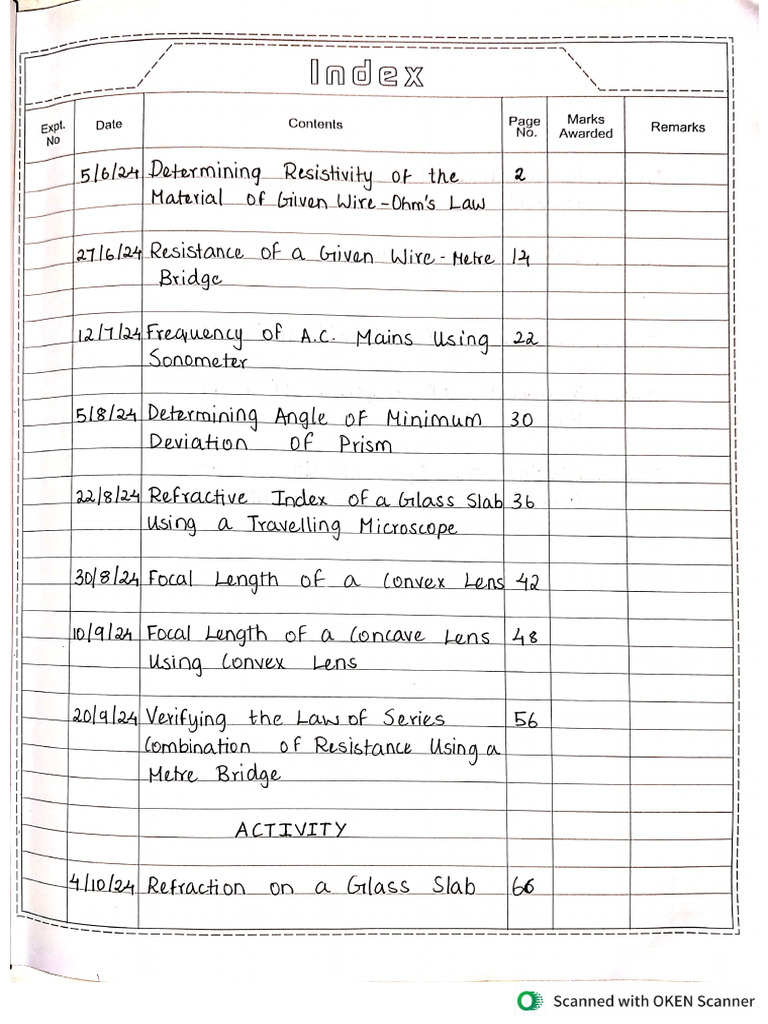 Index
Expt. No Date Contents Page No. Marks Awarded Remarks
5/6/24 Determining Resistivity of the 2
Material of Given Wire-Ohm's Law
27/6/24 Resistance of a Given Wire - Metre 14
Bridge
12/7/24 Frequency of A.C. Mains Using 22
Sonometer
5/8/24 Determining Angle of Minimum 30
Deviation of Prism
22/8/24 Refractive Index of a Glass Slab 36
Using a Travelling Microscope
30/8/24 Focal Length of a Convex Lens 42
10/9/24 Focal Length of a Concave Lens 48
Using Convex Lens
20/9/24 Verifying the Law of Series 56
Combination of Resistance Using a
Metre Bridge
ACTIVITY
4/10/24 Refraction on a Glass Slab 66
Scanned with OKEN Scanner